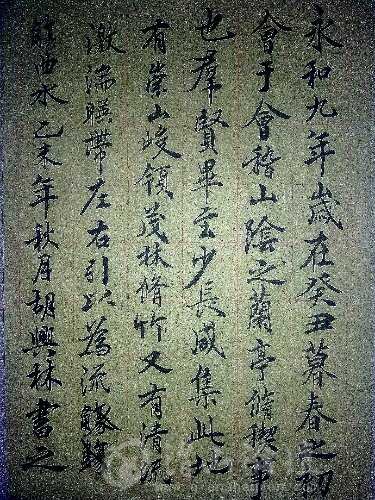 永和九年歲在癸丑暮春之初
會于會稽山陰之蘭亭脩稧事
也羣賢畢至少長咸集此地
有崇山峻領茂林脩竹又有清流
激湍暎帶左右引以為流觴
曲水乙未年秋月胡興林書之